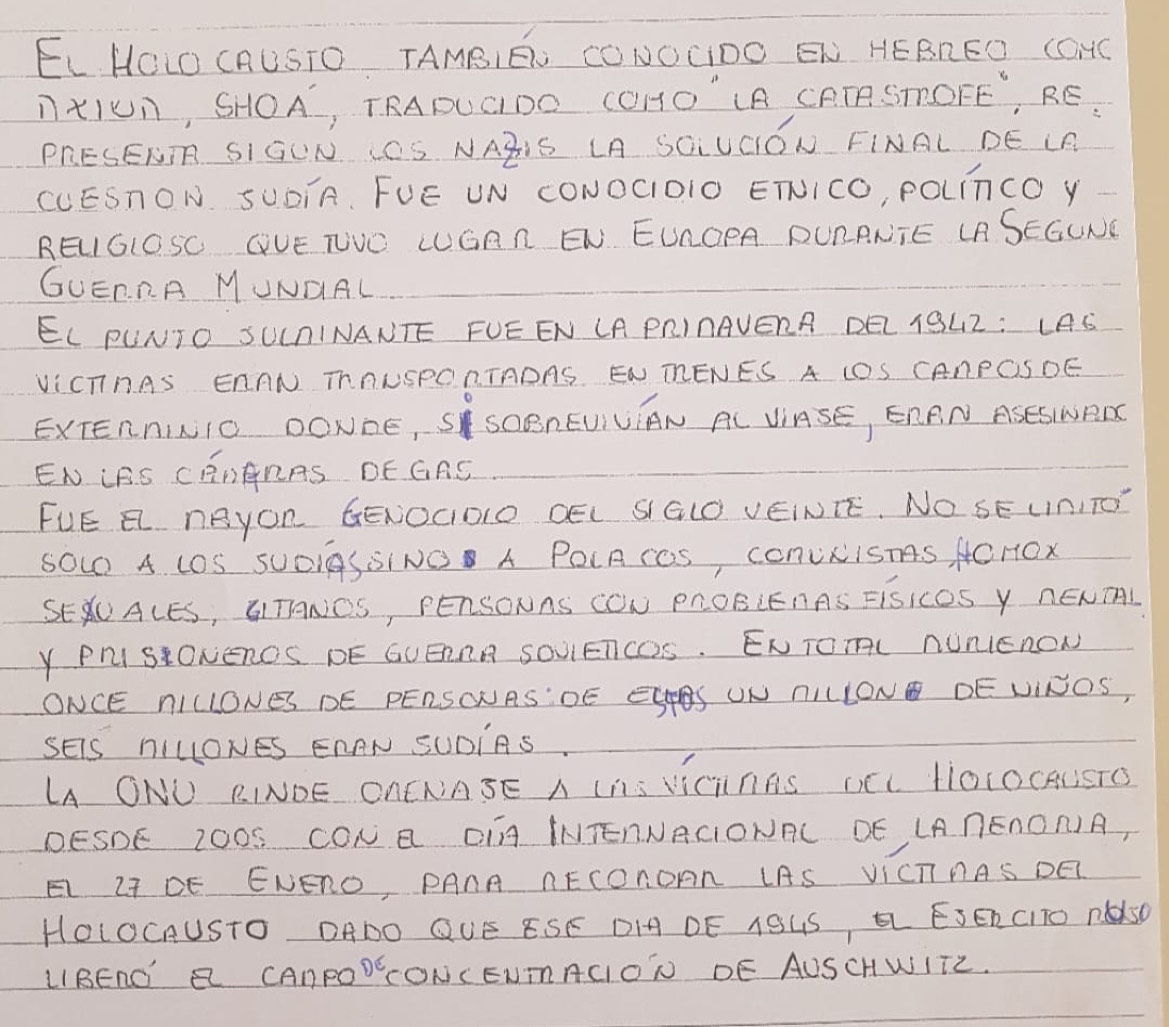 EL HOLOCAUSTO TAMBIÉN CONOCIDO EN HEBREO COMO
SHOÁ, TRADUCIDO COMO "LA CATASTROFE", RE-
PRESENTA SIGUN LOS NAZIS LA SOLUCIÓN FINAL DE LA
CUESTION SUDÍA. FUE UN CONOCIDIO ETNICO, POLÍTICO Y
RELIGIOSO QUE TUVO LUGAR EN EUROPA DURANTE LA SEGUND
GUERRA MUNDIAL
EL PUNTO SULMINANTE FUE EN LA PRIMAVERA DEL 1942: LAS
VÍCTIMAS ERAN TRANSPORTADAS EN TRENES A LOS CAMPOS DE
EXTERMINIO DONDE, SI SOBREVIVÍAN AL VIASE, ERAN ASESINADO
EN LAS CÁMARAS DE GAS
FUE EL MAYOR GENOCIDIO DEL SIGLO VEINTE. NO SE LIMITÓ
SOLO A LOS SUDIAS SINO A POLACOS, COMUNISTAS, HOMOX
SEXUALES, GITANOS, PERSONAS CON PROBLEMAS FÍSICOS Y MENTAL
Y PRISIONEROS DE GUERRA SOVIETICOS. EN TOTAL MURIERON
ONCE MILLONES DE PERSONAS: DE ESTAS UN MILLON DE NIÑOS,
SEIS MILLONES ERAN SUDÍAS.
LA ONU RINDE OMENASE A LAS VÍCTIMAS DEL HOLOCAUSTO
DESDE 2005 CON EL DÍA INTERNACIONAL DE LA MEMORIA,
EL 27 DE ENERO, PARA RECORDAR LAS VÍCTIMAS DEL
HOLOCAUSTO DADO QUE ESE DIA DE 1945, EL ESERCITO RUSO
LIBERÓ EL CAMPO DE CONCENTRACIÓN DE AUSCHWITZ.